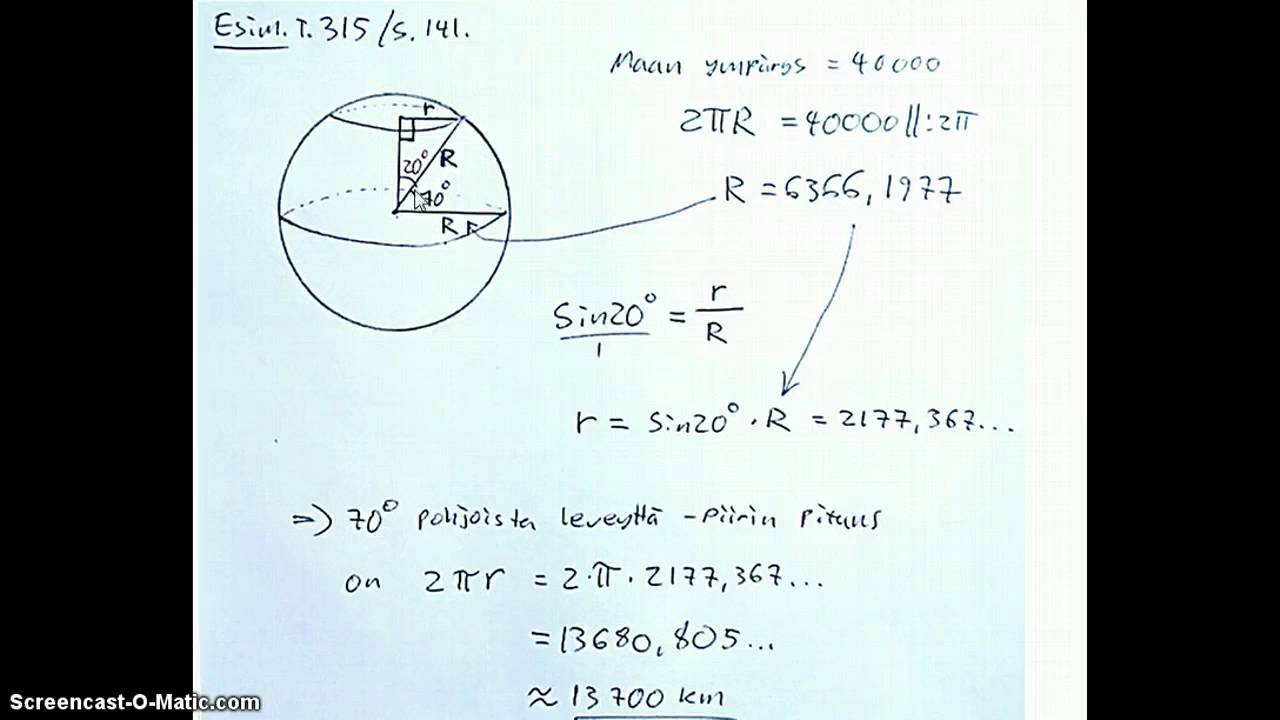 Esim. T. 315 /s. 141.
Maan ympärys = 40000
2πR = 40000 ||:2π
R = 6366,1977
r
20° R
70°
R
sin20° = r/R
1
r = sin20° · R = 2177,367...
=> 70° pohjoista leveyttä -piirin pituus
on 2πr = 2·π·2177,367...
= 13680,805...
≈ 13700 km
Screencast-O-Matic.com